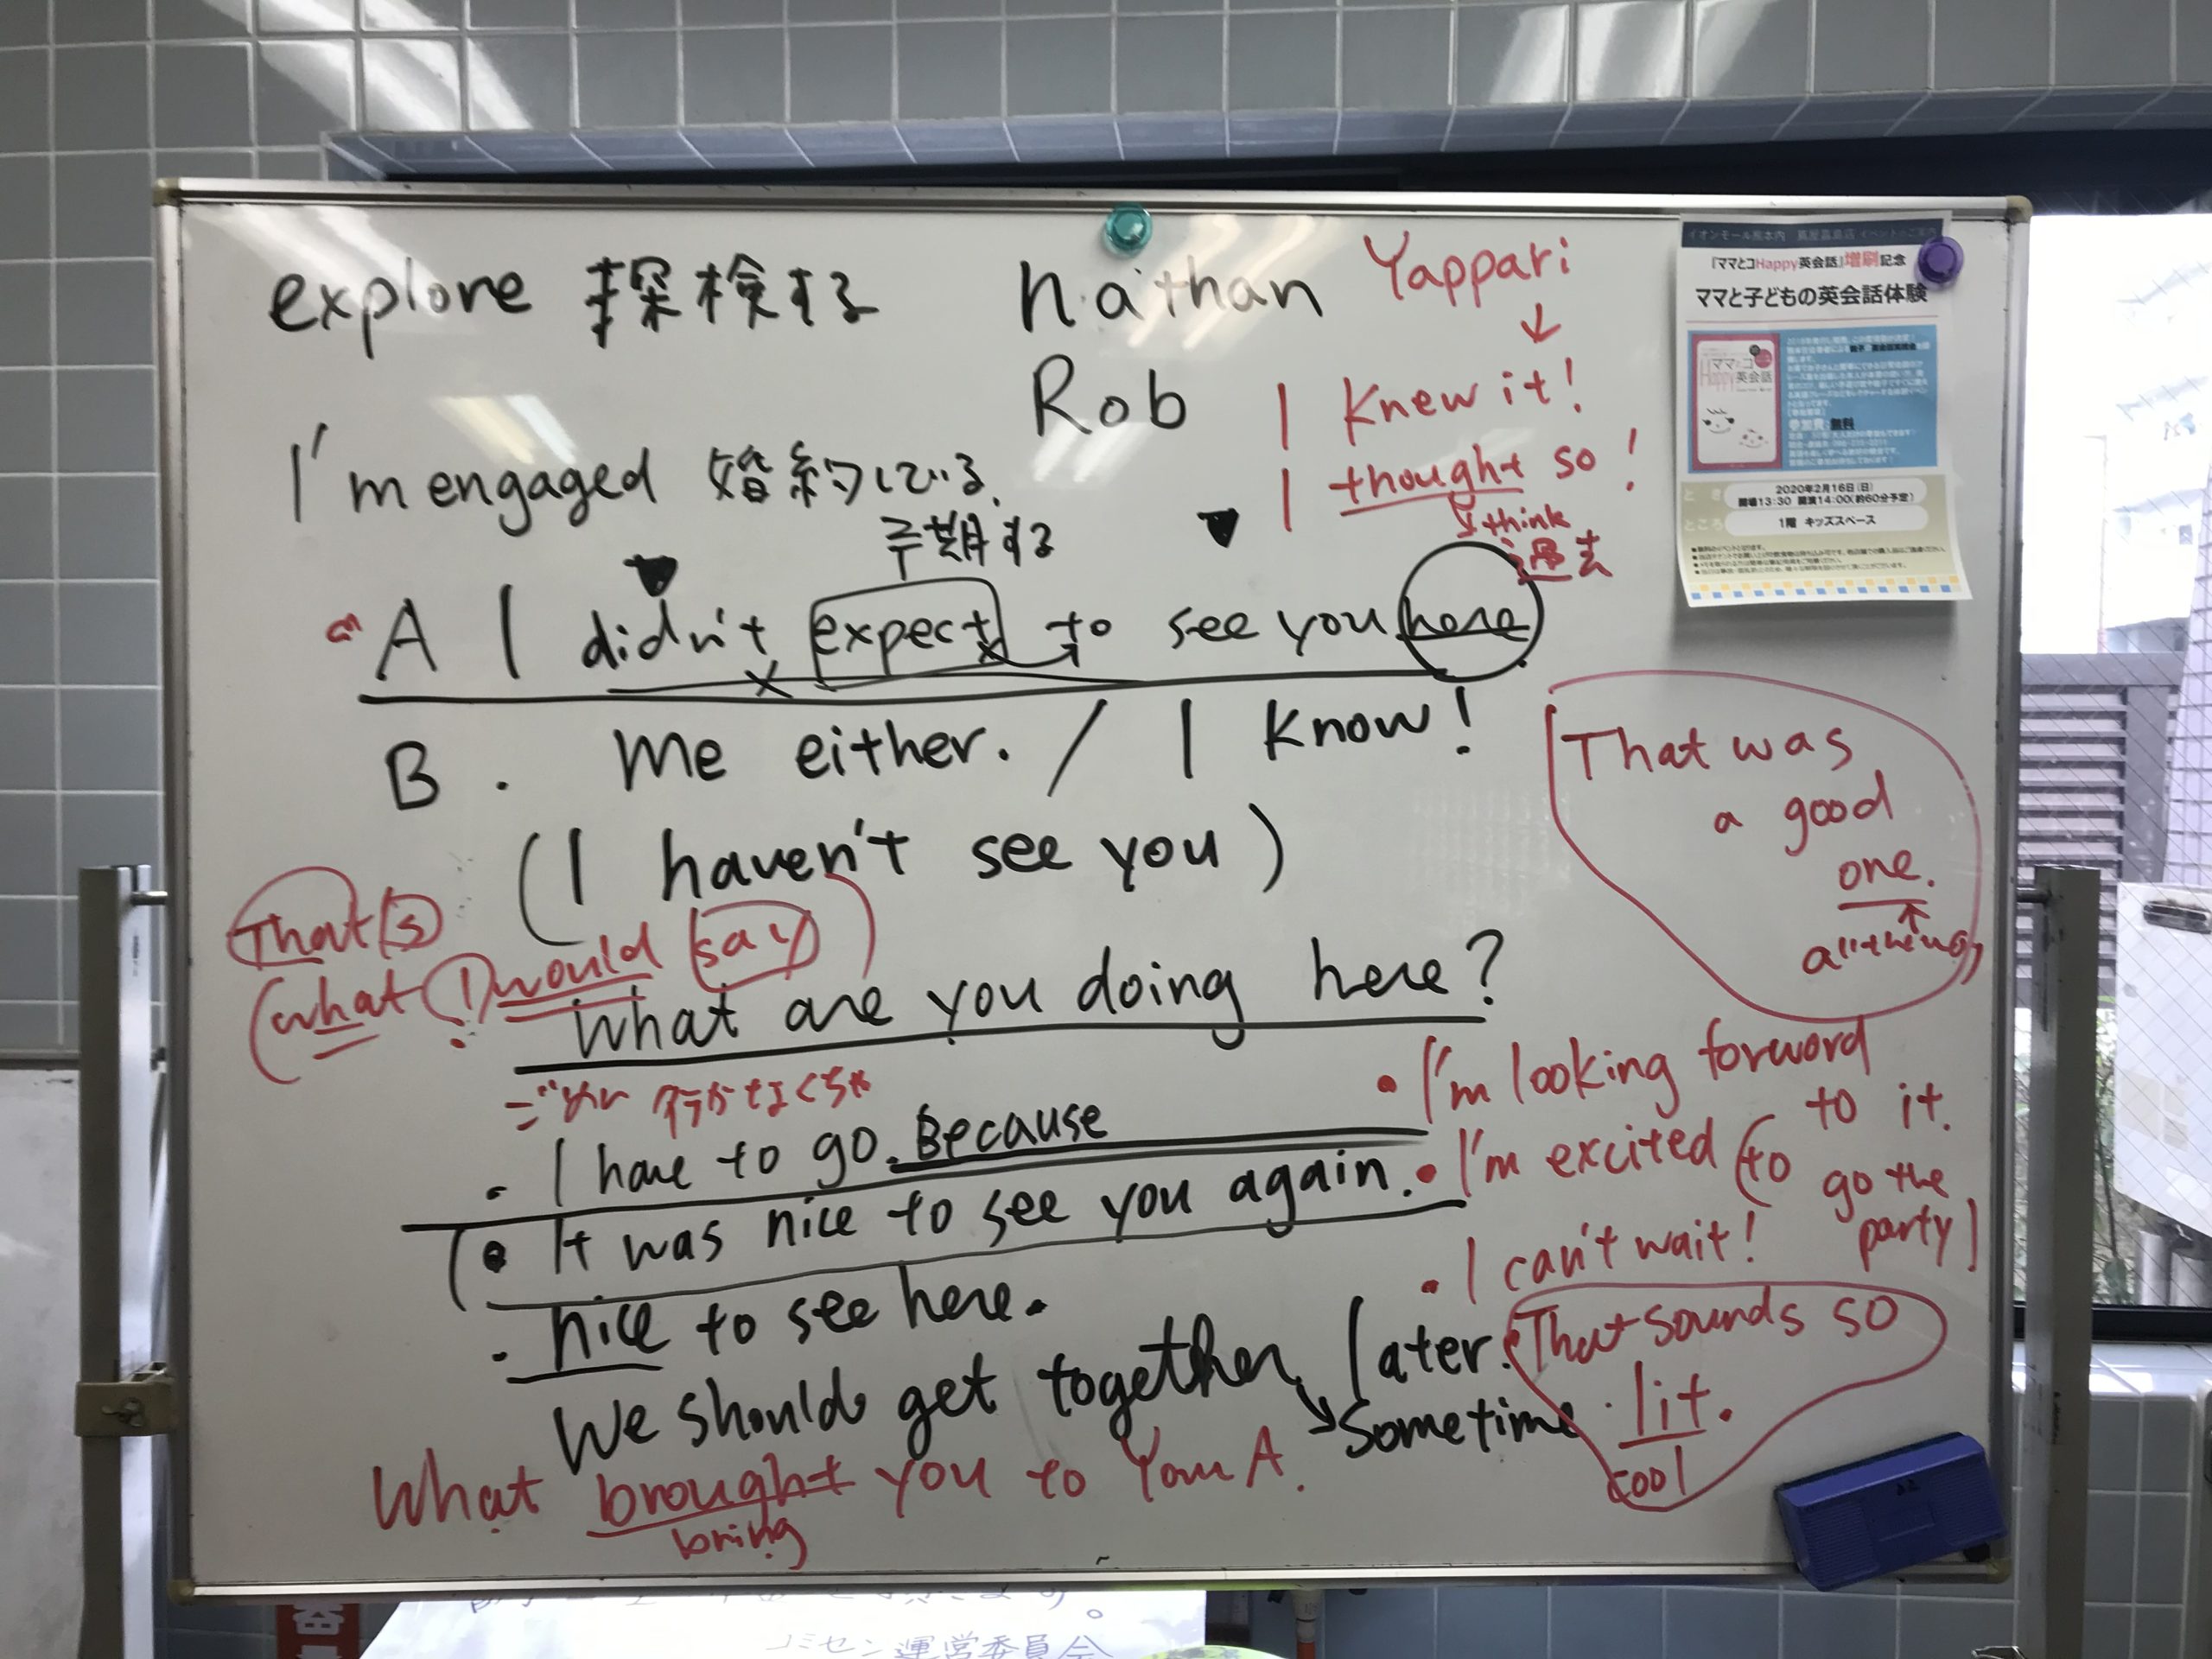 explore 探検する
Nathan
Rob
Yappari
↓
I Knew it!
I thought so!
↓ think
過去
I'm engaged 婚約している.
予期する
A I didn't expect to see you here
B. Me either. / I know!
(I haven't see you)
That(s)
(what I would say)
What are you doing here?
ごめん 行かなくちゃ
• I have to go. Because
• It was nice to see you again.
• nice to see here.
We should get together later.
↘ Sometime
What brought you to Your A.
bring
That was
a good
one.
↑
• I'm looking forword
to it.
• I'm excited (to go the party)
• I can't wait!
• That sounds so
lit.
cool
イオンモール熊本内 蔦屋嘉島店 イベントのご案内
『ママとコHappy英会話』増刷記念
ママと子どもの英会話体験
ママとコ
Happy英会話
参加費 無料
とき
2020年2月16日(日)
開場13:30 開演14:00(約60分予定)
ところ
1階 キッズスペース
コミセン運営委員会